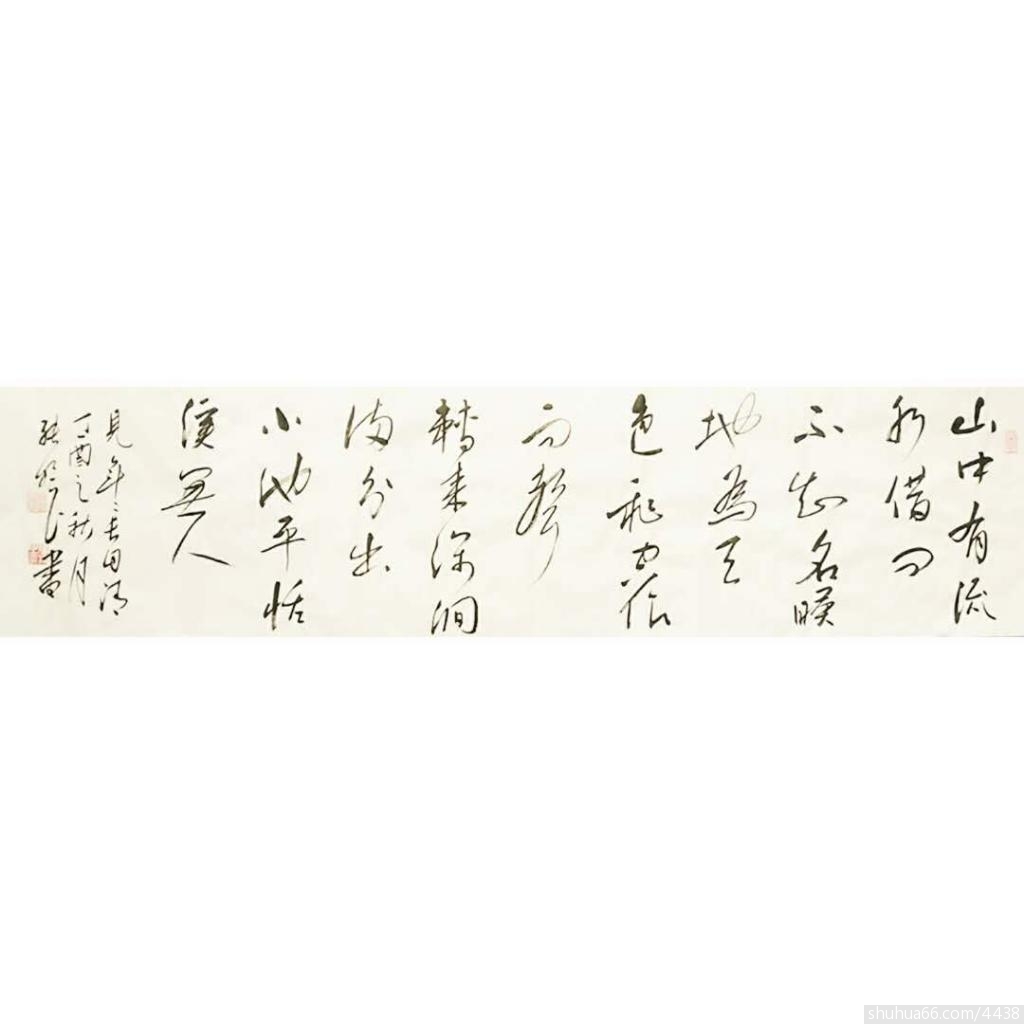 山中有流
水借問
不知名暎
地為天
色飛空作
雨聲
轉來深澗
滿分出
小池平恬
澹無人
見年々長自清
丁酉之秋月
張 書
shuhua66.com/4438